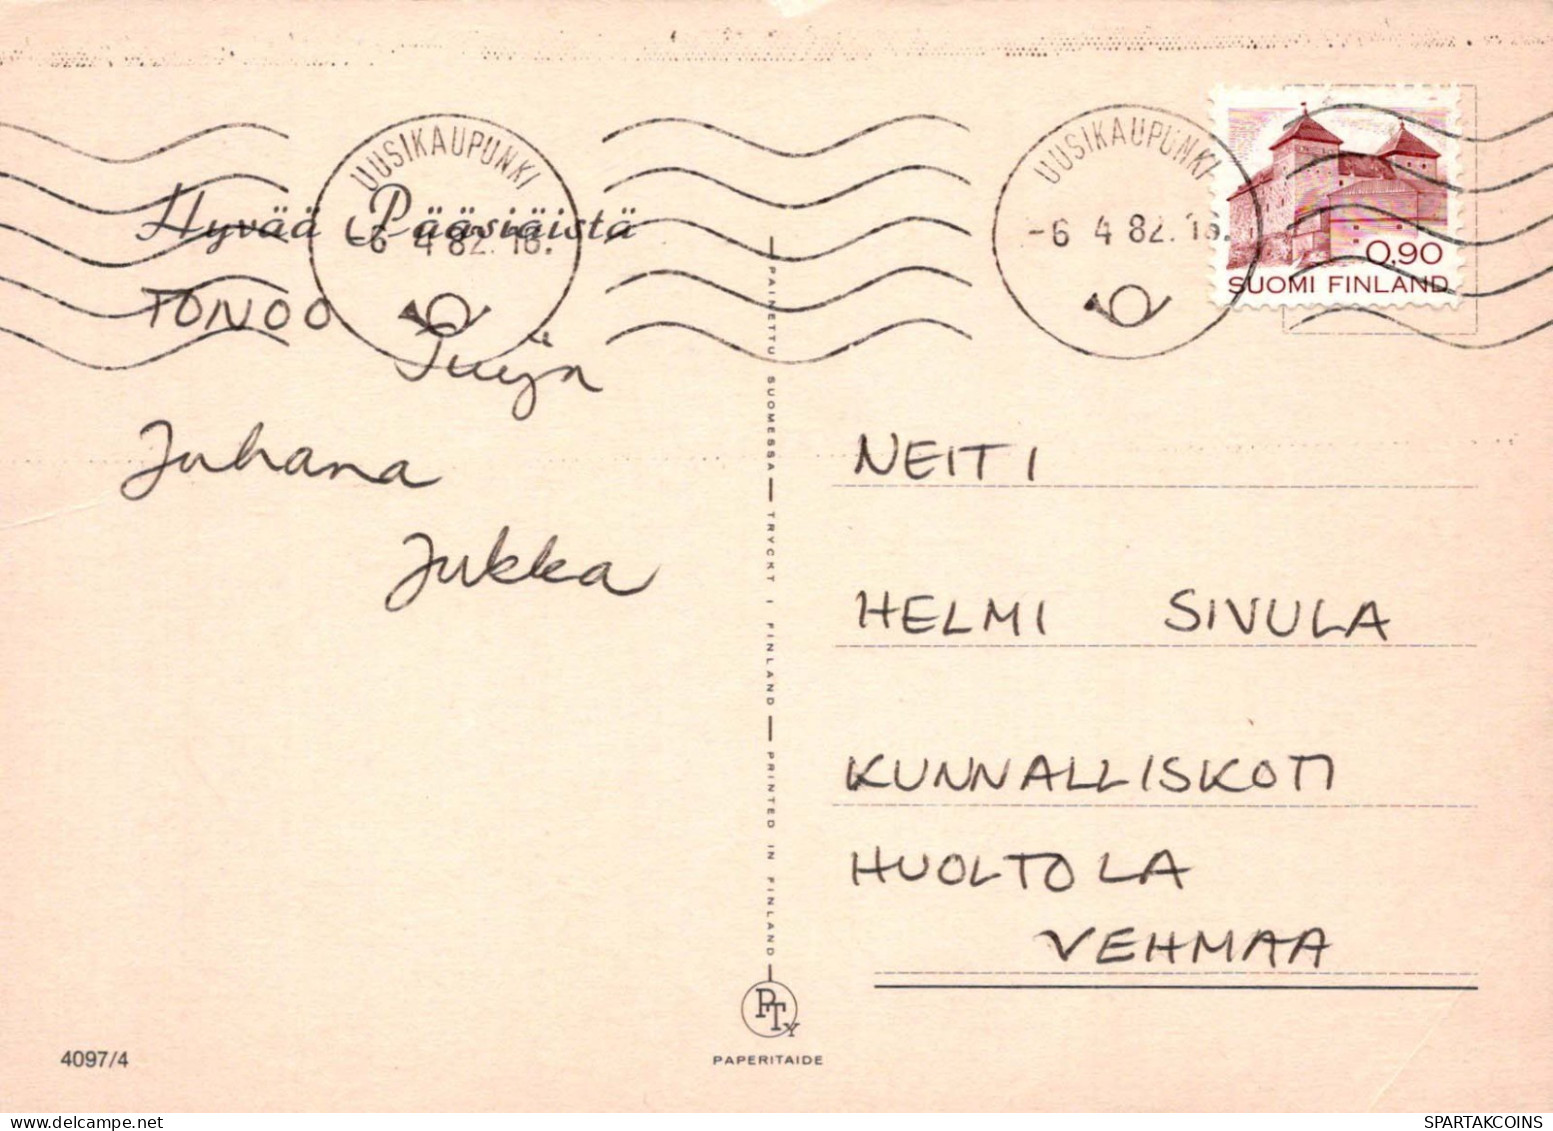 UUSIKAUPUNKI
-6 4 82. 16.
UUSIKAUPUNKI
-6 4 82. 16.
0,90
SUOMI FINLAND
Hyvää Pääsiäistä
TONOO
Tuija
Juhana
Jukka
PAINETTU SUOMESSA — TRYCKT I FINLAND — PRINTED IN FINLAND
NEITI
HELMI SIVULA
KUNNALLISKOTI
HUOLTOLA
VEHMAA
PTy
PAPERITAIDE
4097/4
SPARTAKCOINS